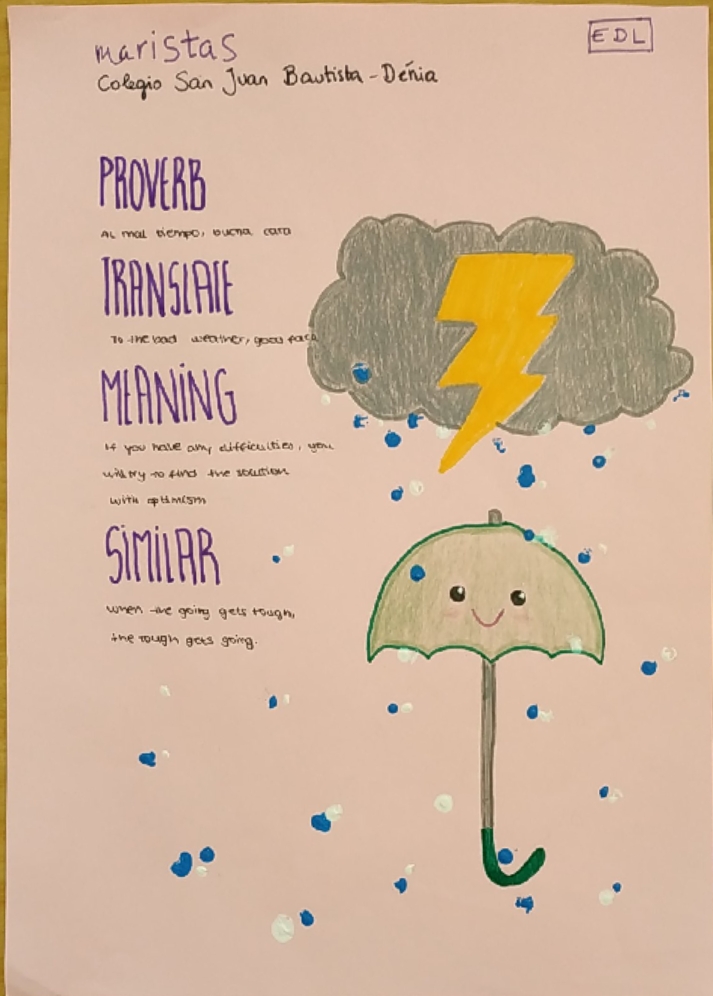 maristas
EDL
Colegio San Juan Bautista - Dénia
PROVERB
Al mal tiempo, buena cara
TRANSLATE
To the bad weather, good face
MEANING
If you have any difficulties, you
will try to find the solution
with optimism
SIMILAR
When the going gets tough,
the tough gets going.